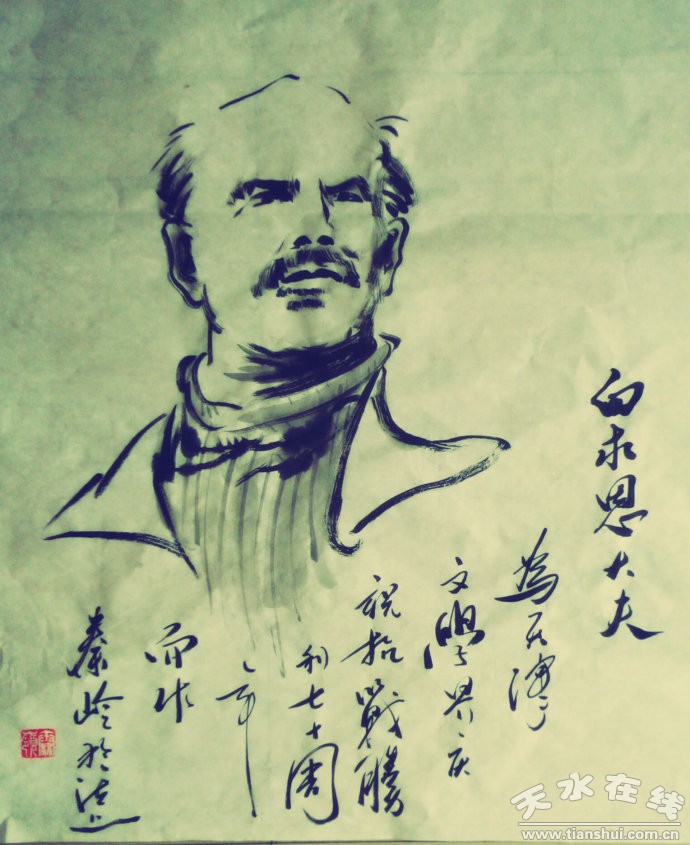 白求恩大夫
為天津
文學界庆
祝抗戰勝
利七十周
年
而作
秦岭於津上
天水在线
www.tianshui.com.cn